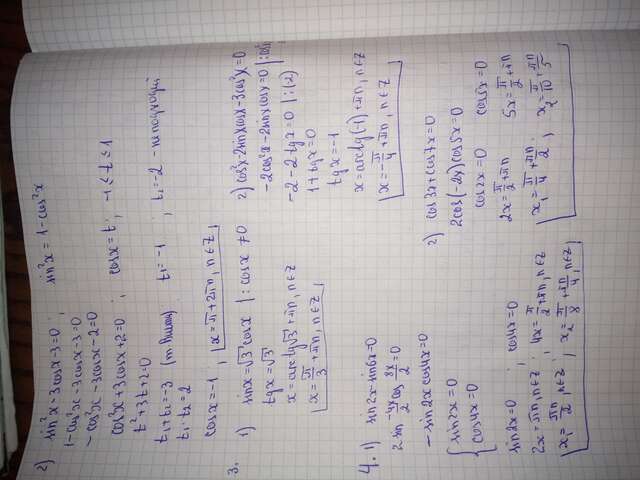 2) sin²x - 3cosx - 3 = 0 ; sin²x = 1 - cos²x
1 - cos²x - 3cosx - 3 = 0
- cos²x - 3cosx - 2 = 0
cos²x + 3cosx + 2 = 0 ; cosx = t ; -1 ≤ t ≤ 1
t² + 3t + 2 = 0
t₁ + t₂ = -3
t₁ · t₂ = 2 (т. Виета) t₁ = -1 ; t₂ = -2 -
cosx = -1 ; x = π + 2πn, n∈Z
3. 1) sinx = √3 cosx | : cosx ≠ 0
tgx = √3
x = arctg√3 + πn, n∈Z
x = π/3 + πn, n∈Z
2) cos²x - 2sinxcosx - 3cos²x = 0
-2cos²x - 2sinxcosx = 0 | : cos²
-2 - 2tgx = 0 | : (2)
1 + tgx = 0
tgx = -1
x = arctg(-1) + πn, n∈Z
x = -π/4 + πn, n∈Z
4. 1) sin2x - sin6x = 0
2sin -4x/2 cos 8x/2 = 0
- sin2x cos4x = 0
{ sin2x = 0
cos4x = 0
sin2x = 0 ; cos4x = 0
2x = πn, n∈Z ; 4x = π/2 + πn, n∈Z
x₁ = πn/2, n∈Z ; x₂ = π/8 + πn/4, n∈Z
2) cos3x + cos7x = 0
2cos(-2x)cos5x = 0
cos2x = 0 cos5x = 0
2x = π/2 + πn 5x = π/2 + πn
x₁ = π/4 + πn/2 ; x₂ = π/10 + πn/5